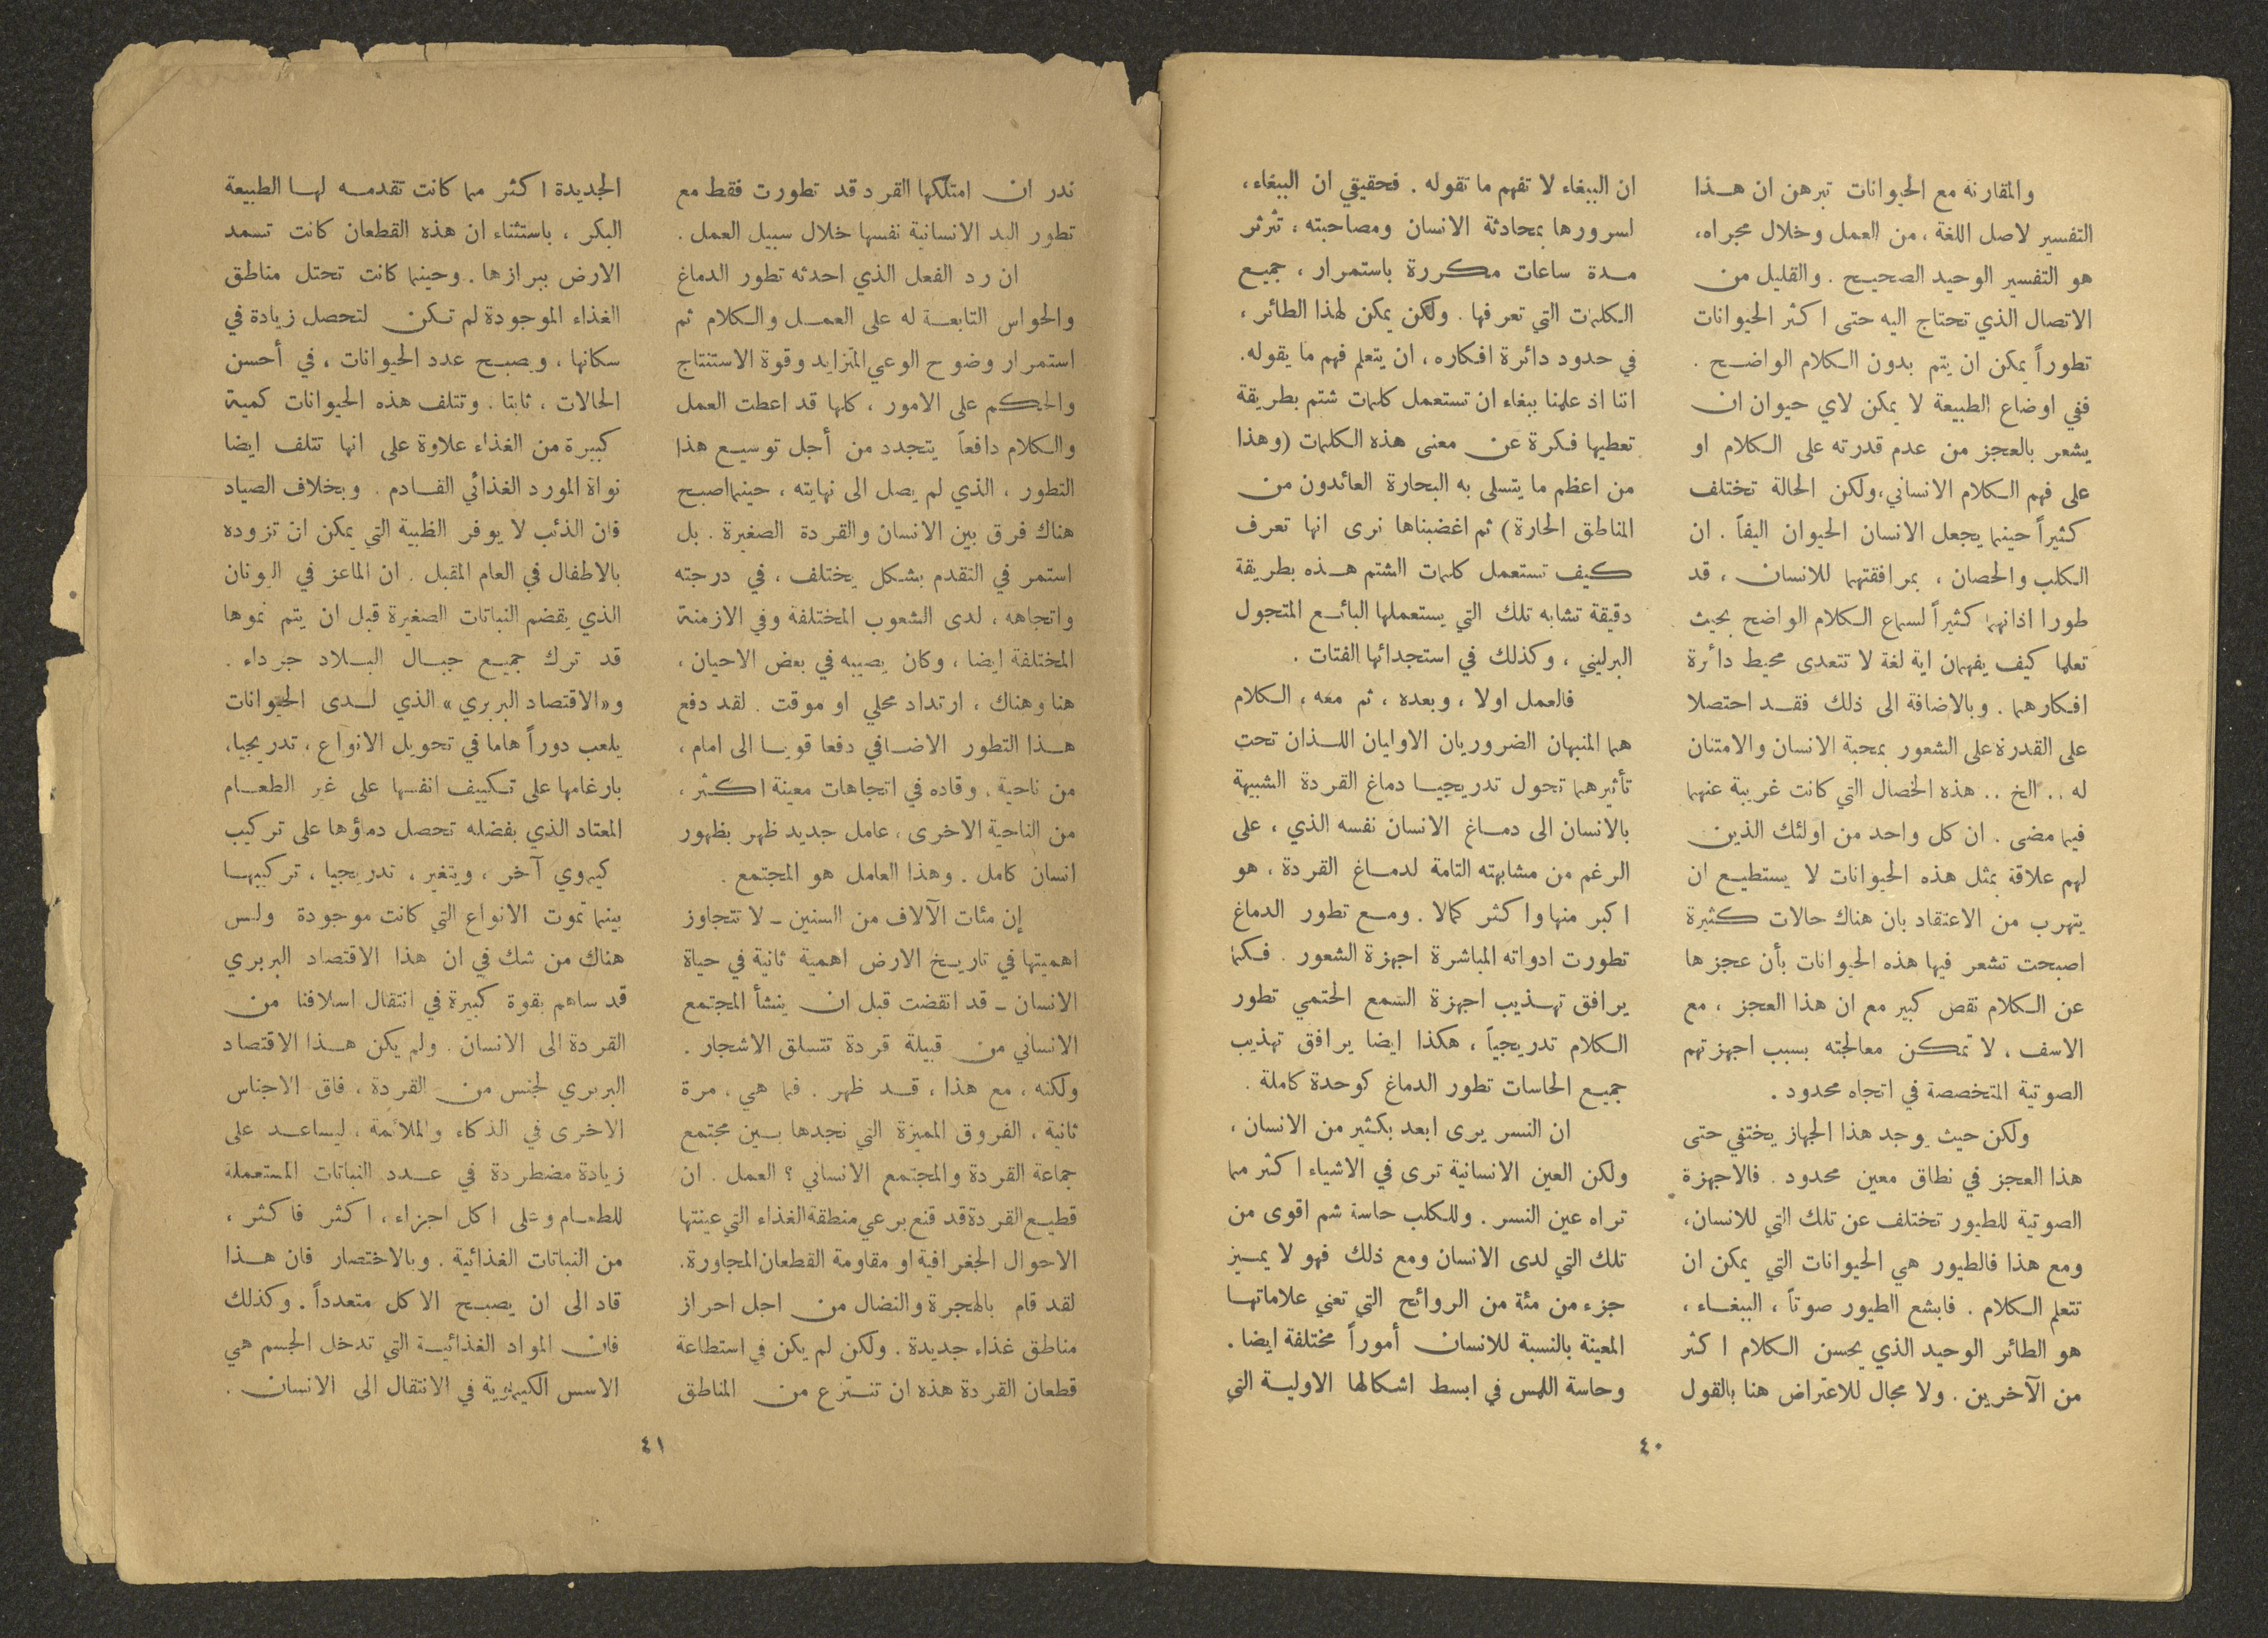 والمقارنة مع الحيوانات تبرهن ان هذا
التفسير لاصل اللغة ، من العمل وخلال مجراه،
هو التفسير الوحيد الصحيح . والقليل من
الاتصال الذي تحتاج اليه حتى اكثر الحيوانات
تطوراً يمكن ان يتم بدون الكلام الواضح .
ففي اوضاع الطبيعة لا يمكن لاي حيوان ان
يشعر بالعجز من عدم قدرته على الكلام او
على فهم الكلام الانساني، ولكن الحالة تختلف
كثيراً حينما يجعل الانسان الحيوان اليفاً . ان
الكلب والحصان ، بمرافقتهما للانسان ، قد
طورا اذانهما كثيراً لسماع الكلام الواضح بحيث
تعلما كيف يفهمان اية لغة لا تتعدى محيط دائرة
افكارهما . وبالاضافة الى ذلك فقد احتصلا
على القدرة على الشعور بمحبة الانسان والامتنان
له .. الخ .. هذه الخصال التي كانت غريبة عنهما
فيما مضى . ان كل واحد من اولئك الذين
لهم علاقة بمثل هذه الحيوانات لا يستطيع ان
يتهرب من الاعتقاد بان هناك حالات كثيرة
اصبحت تشعر فيها هذه الحيوانات بأن عجزها
عن الكلام نقص كبير مع ان هذا العجز ، مع
الاسف ، لا تمكن معالجته بسبب اجهزتهم
الصوتية المتخصصة في اتجاه محدود .
ولكن حيث يوجد هذا الجهاز يختفي حتى
هذا العجز في نطاق معين محدود . فالاجهزة
الصوتية للطيور تختلف عن تلك التي للانسان،
ومع هذا فالطيور هي الحيوانات التي يمكن ان
تتعلم الكلام . فابشع الطيور صوتاً ، الببغاء ،
هو الطائر الوحيد الذي يحسن الكلام اكثر
من الآخرين . ولا مجال للاعتراض هنا بالقول
ان الببغاء لا تفهم ما تقوله . فحقيقي ان الببغاء،
لسرورها بمحادثة الانسان ومصاحبته ، تثرثر
مدة ساعات مكررة باستمرار ، جميع
الكلمات التي تعرفها . ولكن يمكن لهذا الطائر ،
في حدود دائرة افكاره ، ان يتعلم فهم ما يقوله.
اننا اذ علمنا ببغاء ان تستعمل كلمات شتم بطريقة
تعطيها فكرة عن معنى هذه الكلمات (وهذا
من اعظم ما يتسلى به البحارة العائدون من
المناطق الحارة) ثم اغضبناها نرى انها تعرف
كيف تستعمل كلمات الشتم هذه بطريقة
دقيقة تشابه تلك التي يستعملها البائع المتجول
البرليني ، وكذلك في استجدائها الفتات .
فالعمل اولا ، وبعده ، ثم معه ، الكلام
هما المنبهان الضروريان الاوليان اللذان تحت
تأثيرهما تحول تدريجيا دماغ القردة الشبيهة
بالانسان الى دماغ الانسان نفسه الذي ، على
الرغم من مشابهته التامة لدماغ القردة ، هو
اكبر منها واكثر كمالا . ومع تطور الدماغ
تطورت ادواته المباشرة اجهزة الشعور . فكما
يرافق تهذيب اجهزة السمع الحتمي تطور
الكلام تدريجياً ، هكذا ايضا يرافق تهذيب
جميع الحاسات تطور الدماغ كوحدة كاملة .
ان النسر يرى ابعد بكثير من الانسان ،
ولكن العين الانسانية ترى في الاشياء اكثر مما
تراه عين النسر . وللكلب حاسة شم اقوى من
تلك التي لدى الانسان ومع ذلك فهو لا يميز
جزء من مئة من الروائح التي تعني علاماتها
المعينة بالنسبة للانسان أموراً مختلفة ايضا .
وحاسة اللمس في ابسط اشكالها الاولية التي
٤٠
ندر ان امتلكها القرد قد تطورت فقط مع
تطور اليد الانسانية نفسها خلال سبيل العمل .
ان رد الفعل الذي احدثه تطور الدماغ
والحواس التابعة له على العمل والكلام ثم
استمرار وضوح الوعي المتزايد وقوة الاستنتاج
والحكم على الامور ، كلها قد اعطت العمل
والكلام دافعاً يتجدد من أجل توسيع هذا
التطور ، الذي لم يصل الى نهايته ، حينما اصبح
هناك فرق بين الانسان والقردة الصغيرة . بل
استمر في التقدم بشكل يختلف ، في درجته
واتجاهه ، لدى الشعوب المختلفة وفي الازمنة
المختلفة ايضا ، وكان يصيبه في بعض الاحيان ،
هنا وهناك ، ارتداد محلي او موقت . لقد دفع
هذا التطور الاضافي دفعا قويا الى امام ،
من ناحية . وقاده في اتجاهات معينة اكثر ،
من الناحية الاخرى ، عامل جديد ظهر بظهور
انسان كامل . وهذا العامل هو المجتمع .
إن مئات الآلاف من السنين - لا تتجاوز
اهميتها في تاريخ الارض اهمية ثانية في حياة
الانسان - قد انقضت قبل ان ينشأ المجتمع
الانساني من قبيلة قردة تتسلق الاشجار .
ولكنه ، مع هذا ، قد ظهر . فما هي ، مرة
ثانية ، الفروق المميزة التي نجدها بين مجتمع
جماعة القردة والمجتمع الانساني ؟ العمل . ان
قطيع القردة قد قنع برعي منطقة الغذاء التي عينتها
الاحوال الجغرافية او مقاومة القطعان المجاورة.
لقد قام بالهجرة والنضال من اجل احراز
مناطق غذاء جديدة . ولكن لم يكن في استطاعة
قطعان القردة هذه ان تنتزع من المناطق
الجديدة اكثر مما كانت تقدمه لها الطبيعة
البكر ، باستثناء ان هذه القطعان كانت تسمد
الارض ببرازها . وحينما كانت تحتل مناطق
الغذاء الموجودة لم تكن لتحصل زيادة في
سكانها ، ويصبح عدد الحيوانات ، في أحسن
الحالات ، ثابتا . وتتلف هذه الحيوانات كمية
كبيرة من الغذاء علاوة على انها تتلف ايضا
نواة المورد الغذائي القادم . وبخلاف الصياد
فان الذئب لا يوفر الظبية التي يمكن ان تزوده
بالاطفال في العام المقبل . ان الماعز في اليونان
الذي يقضم النباتات الصغيرة قبل ان يتم نموها
قد ترك جميع جبال البلاد جرداء .
و«الاقتصاد البربري» الذي لدى الحيوانات
يلعب دوراً هاما في تحويل الانواع ، تدريجيا،
بارغامها على تكييف انفسها على غير الطعام
المعتاد الذي بفضله تحصل دماؤها على تركيب
كيموي آخر ، ويتغير ، تدريجيا ، تركيبها
بينما تموت الانواع التي كانت موجودة وليس
هناك من شك في ان هذا الاقتصاد البربري
قد ساهم بقوة كبيرة في انتقال اسلافنا من
القردة الى الانسان . ولم يكن هذا الاقتصاد
البربري لجنس من القردة ، فاق الاجناس
الاخرى في الذكاء والملائمة ، ليساعد على
زيادة مضطردة في عدد النباتات المستعملة
للطعام وعلى اكل اجزاء ، اكثر فاكثر ،
من النباتات الغذائية . وبالاختصار فان هذا
قاد الى ان يصبح الاكل متعدداً . وكذلك
فان المواد الغذائية التي تدخل الجسم هي
الاسس الكيماوية في الانتقال الى الانسان .
٤١